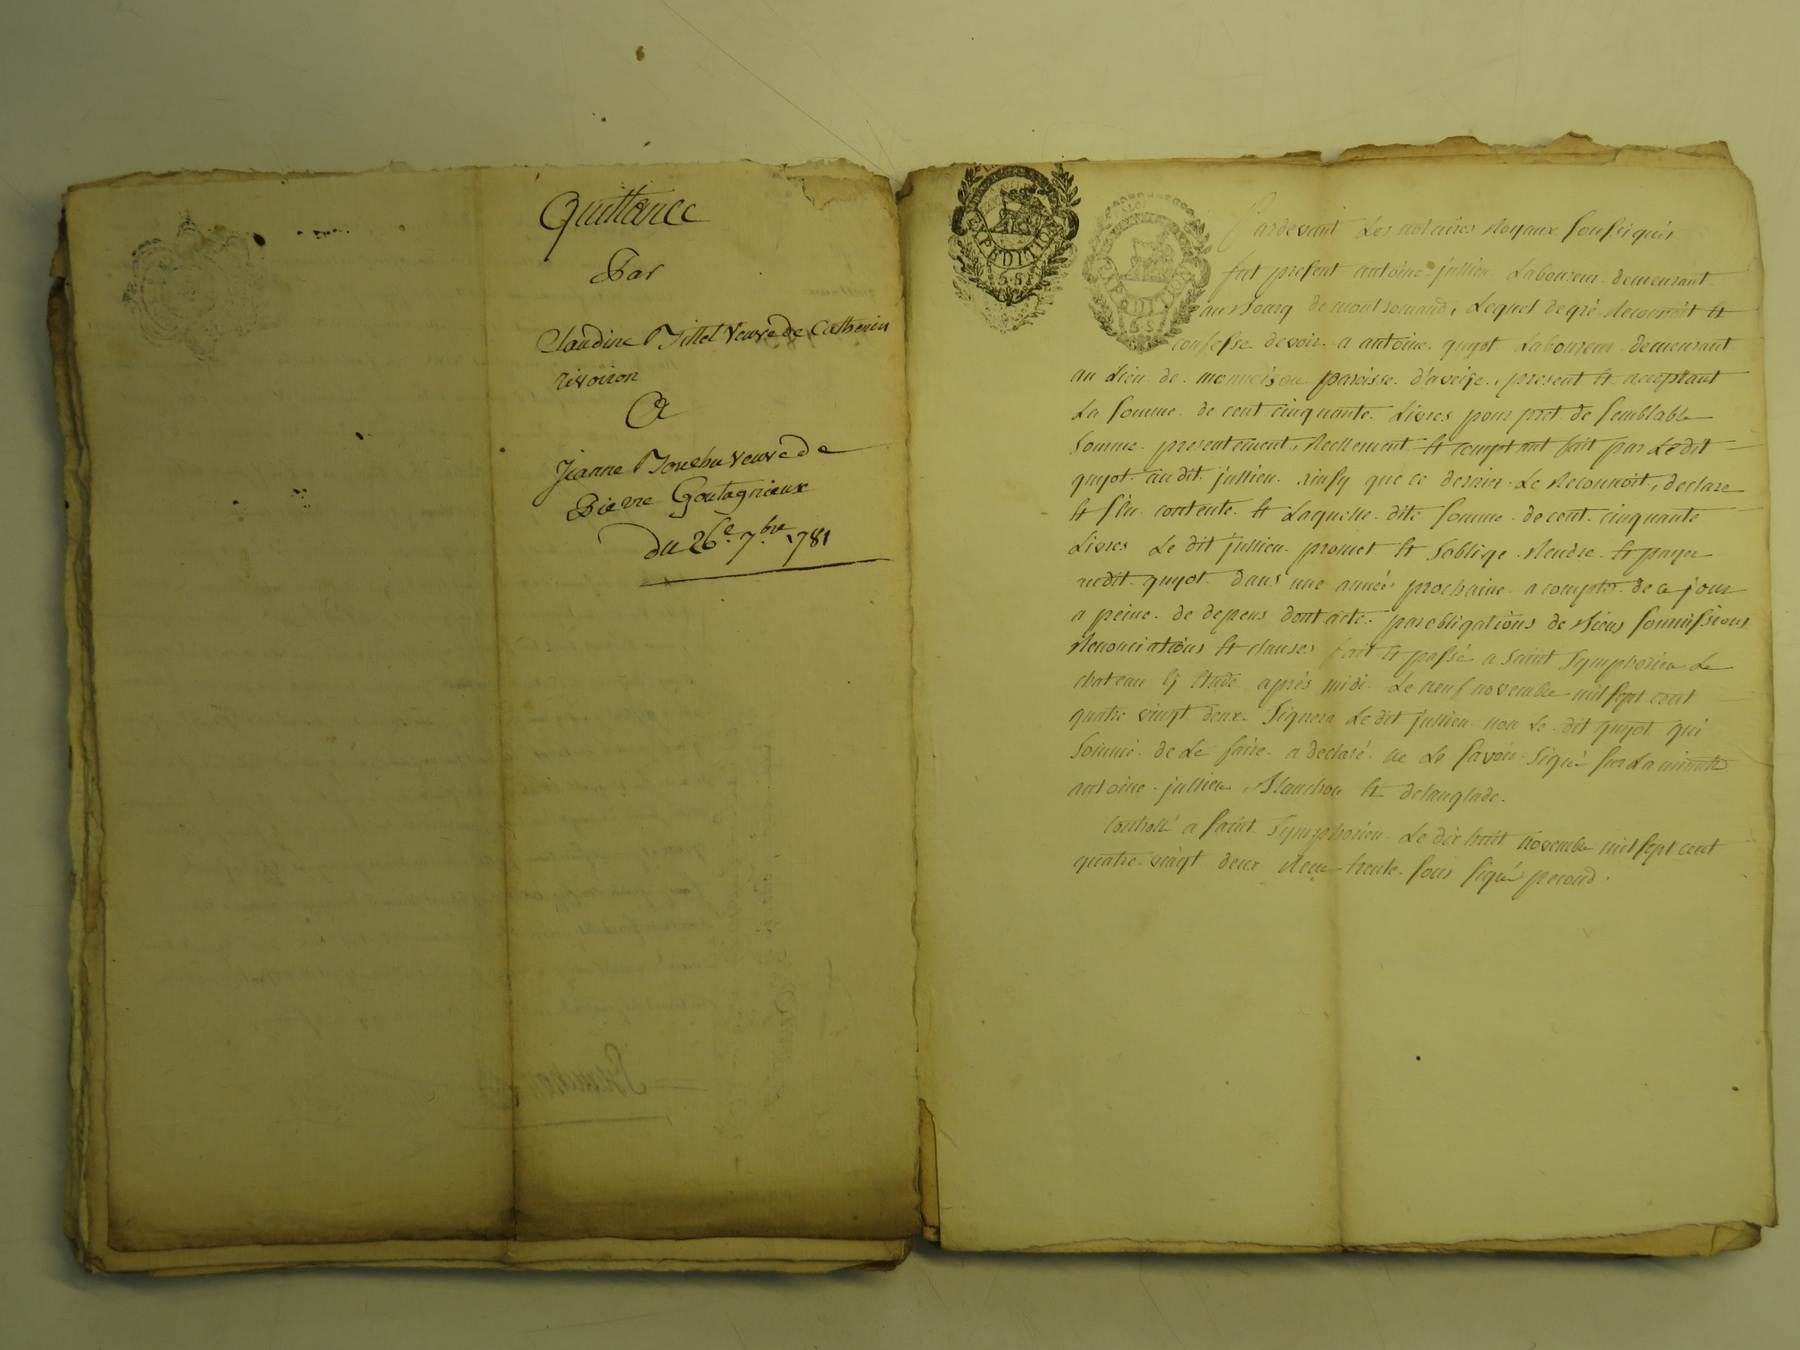 Quittance
Par
Claudine Tillel veuve de Catherin
rivoiron
A
Jeanne veuve de
Pierre Goutagnieux
du 26e. 7bre 1781
EXPEDITION
5 S
EXPEDITION
5 S
Pardevant Les notaires Royaux soussignés
fut present antoine jullien Laboureur demeurant
au Bourg de montromand, Lequel de gré Reconnoit et
confesse devoir a antoine guyot Laboureur demeurant
au Lieu de paroisse d'aveize, present et acceptant
La somme de cent cinquante Livres pour pret de semblable
somme presentement, Reellement et comptant fait par Ledit
guyot audit jullien ainsy que ce dernier Le Reconnoit, declare
et s'en contente et Laquelle dite somme de cent cinquante
Livres Le dit jullien promet et soblige Rendre et payer
audit guyot dans une année prochaine a compter de ce jour
a peine de depens dont acte par obligations de Biens soumissions
Renonciations et clauses fait et passé a saint Symphorien Le
chateau Ez Etude après midi Le neuf novembre mil sept cent
quatre vingt deux Signera Le dit jullien non Le dit guyot qui
sommé de Le faire a declaré ne Le savoir Signé sur La minutte
antoine jullien, Blanchon et delanglade.
Controllé a saint Symphorien Le dix huit novembre mil sept cent
quatre vingt deux Reçu trente sous signé perond.